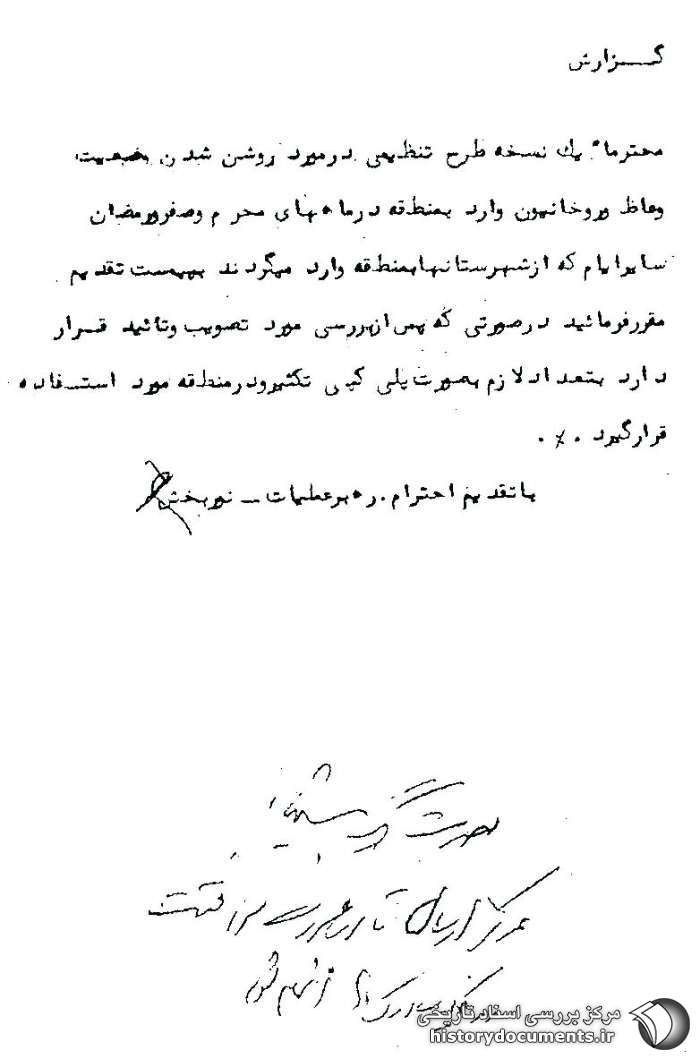 گزارش
محترما" یک نسخه طرح تنظیمی درمورد روشن شدن وضعیت
وعاظ وروحانیون وارد بمنطقه درماههای محرم وصفرورمضان
سایرایام که ازشهرستانهابمنطقه وارد میگردند بپیوست تقدیم
مقررفرمائید درصورتی که پس ازبررسی مورد تصویب وتائید قرار
دارد بتعداد لازم بصورت پلی کپی تکثیرودرمنطقه مورد استفاده
قرارگیرد ٠٪٠
باتقدیم احترام. رهبرعملیات ـ نوربخش
بمرکز ارسال تا
شود
مرکز بررسی اسناد تاریخی
historydocuments.ir